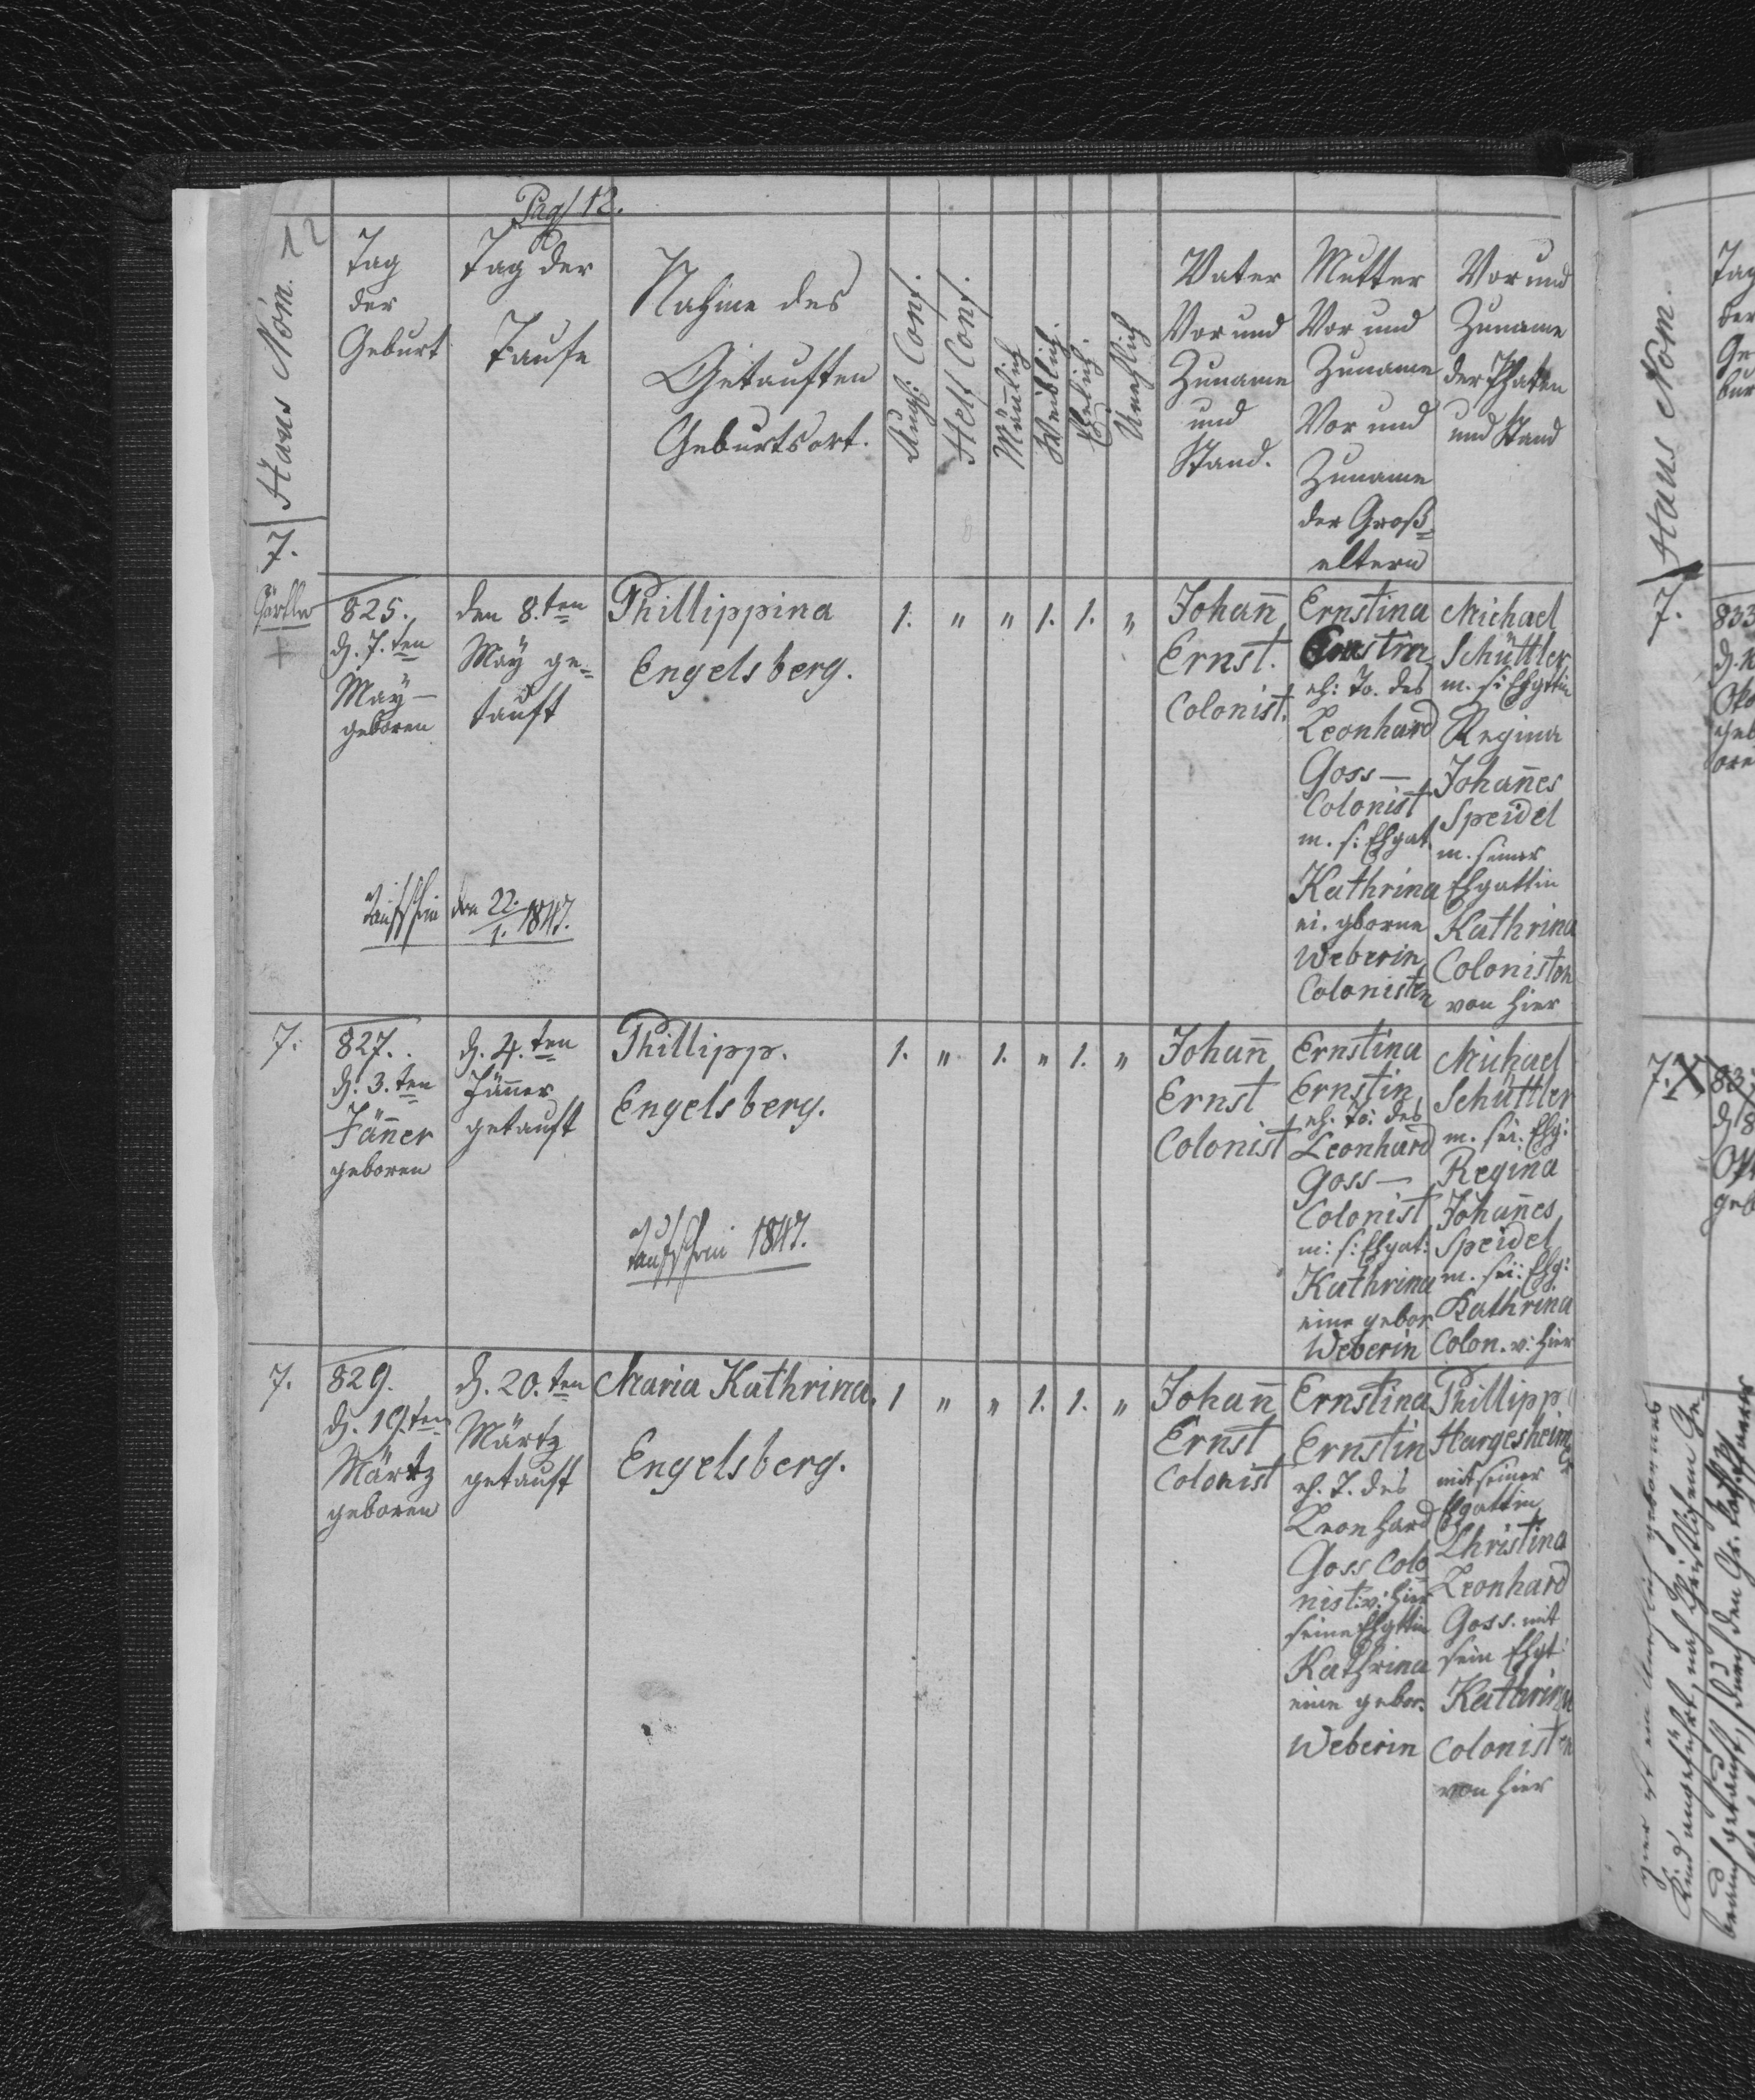 Pag 12.
12
Haus Nom.
7.
Tag
der
Geburt
Tag der
Taufe
Nahme des
Getauften
Geburtsort.
Augs: Conf.
Helf Conf.
Mänlich
Weiblich.
Ehelich.
Unehlich
Vater
Vor und
Zuname
und
Stand.
Mutter
Vor und
Zuname
Vor und
Zuname
der Groß=
eltern
Vor und
Zuname
der Pathen
und Stand
825.
d. 7.ten
May
geboren
den 8.ten
May ge=
tauft
Phillippina
Engelsberg.
1. " " 1. 1. "
Johan̄
Ernst.
Colonist.
Ernstina
Ernstin
eh: To. des
Leonhard
Goss
Colonist
m. s: Ehgat.
Kathrina
ei. gborne
Weberin
Colonisten
Michael
Schüttler
m. s: Ehgttin
Regina
Johan̄es
Speidel
m. seiner
Ehgattin
Kathrina
Colonisten
von hier
Taufschein den 22./1. 1847.
7.
827.
d. 3.ten
Jän̄er
geboren
d. 4.ten
Jän̄er
getauft
Phillipp.
Engelsberg.
1. " 1. " 1. "
Johan̄
Ernst
Colonist
Ernstina
Ernstin
eh. To: des
Leonhard
Goss
Colonist
m: s: Ehgat:
Kathrina
eine gebor
Weberin
Michael
Schüttler
m. sei. Ehg:
Regina
Johan̄es
Speidel
m. sei: Ehg:
Kathrina
Colon. v: hier
Taufschein 1847.
7.
829.
d. 19.ten
Märtz
geboren
d. 20.ten
Märtz
getauft
Maria Kathrina.
Engelsberg.
1 " " 1. 1. "
Johan̄
Ernst
Colonist
Ernstina
Ernstin
eh. T. des
Leonhard
Goss Colo
nist: v: hier
seine Ehgttin
Kathrina
eine gebor.
Weberin
Phillipp
Hargesheim
mit seiner
Ehgattin
Christina
Leonhard
Goss. mit
sein Ehgt:
Kathrina
Colonisten
von hier
Haus Nom.
7.
833
7.